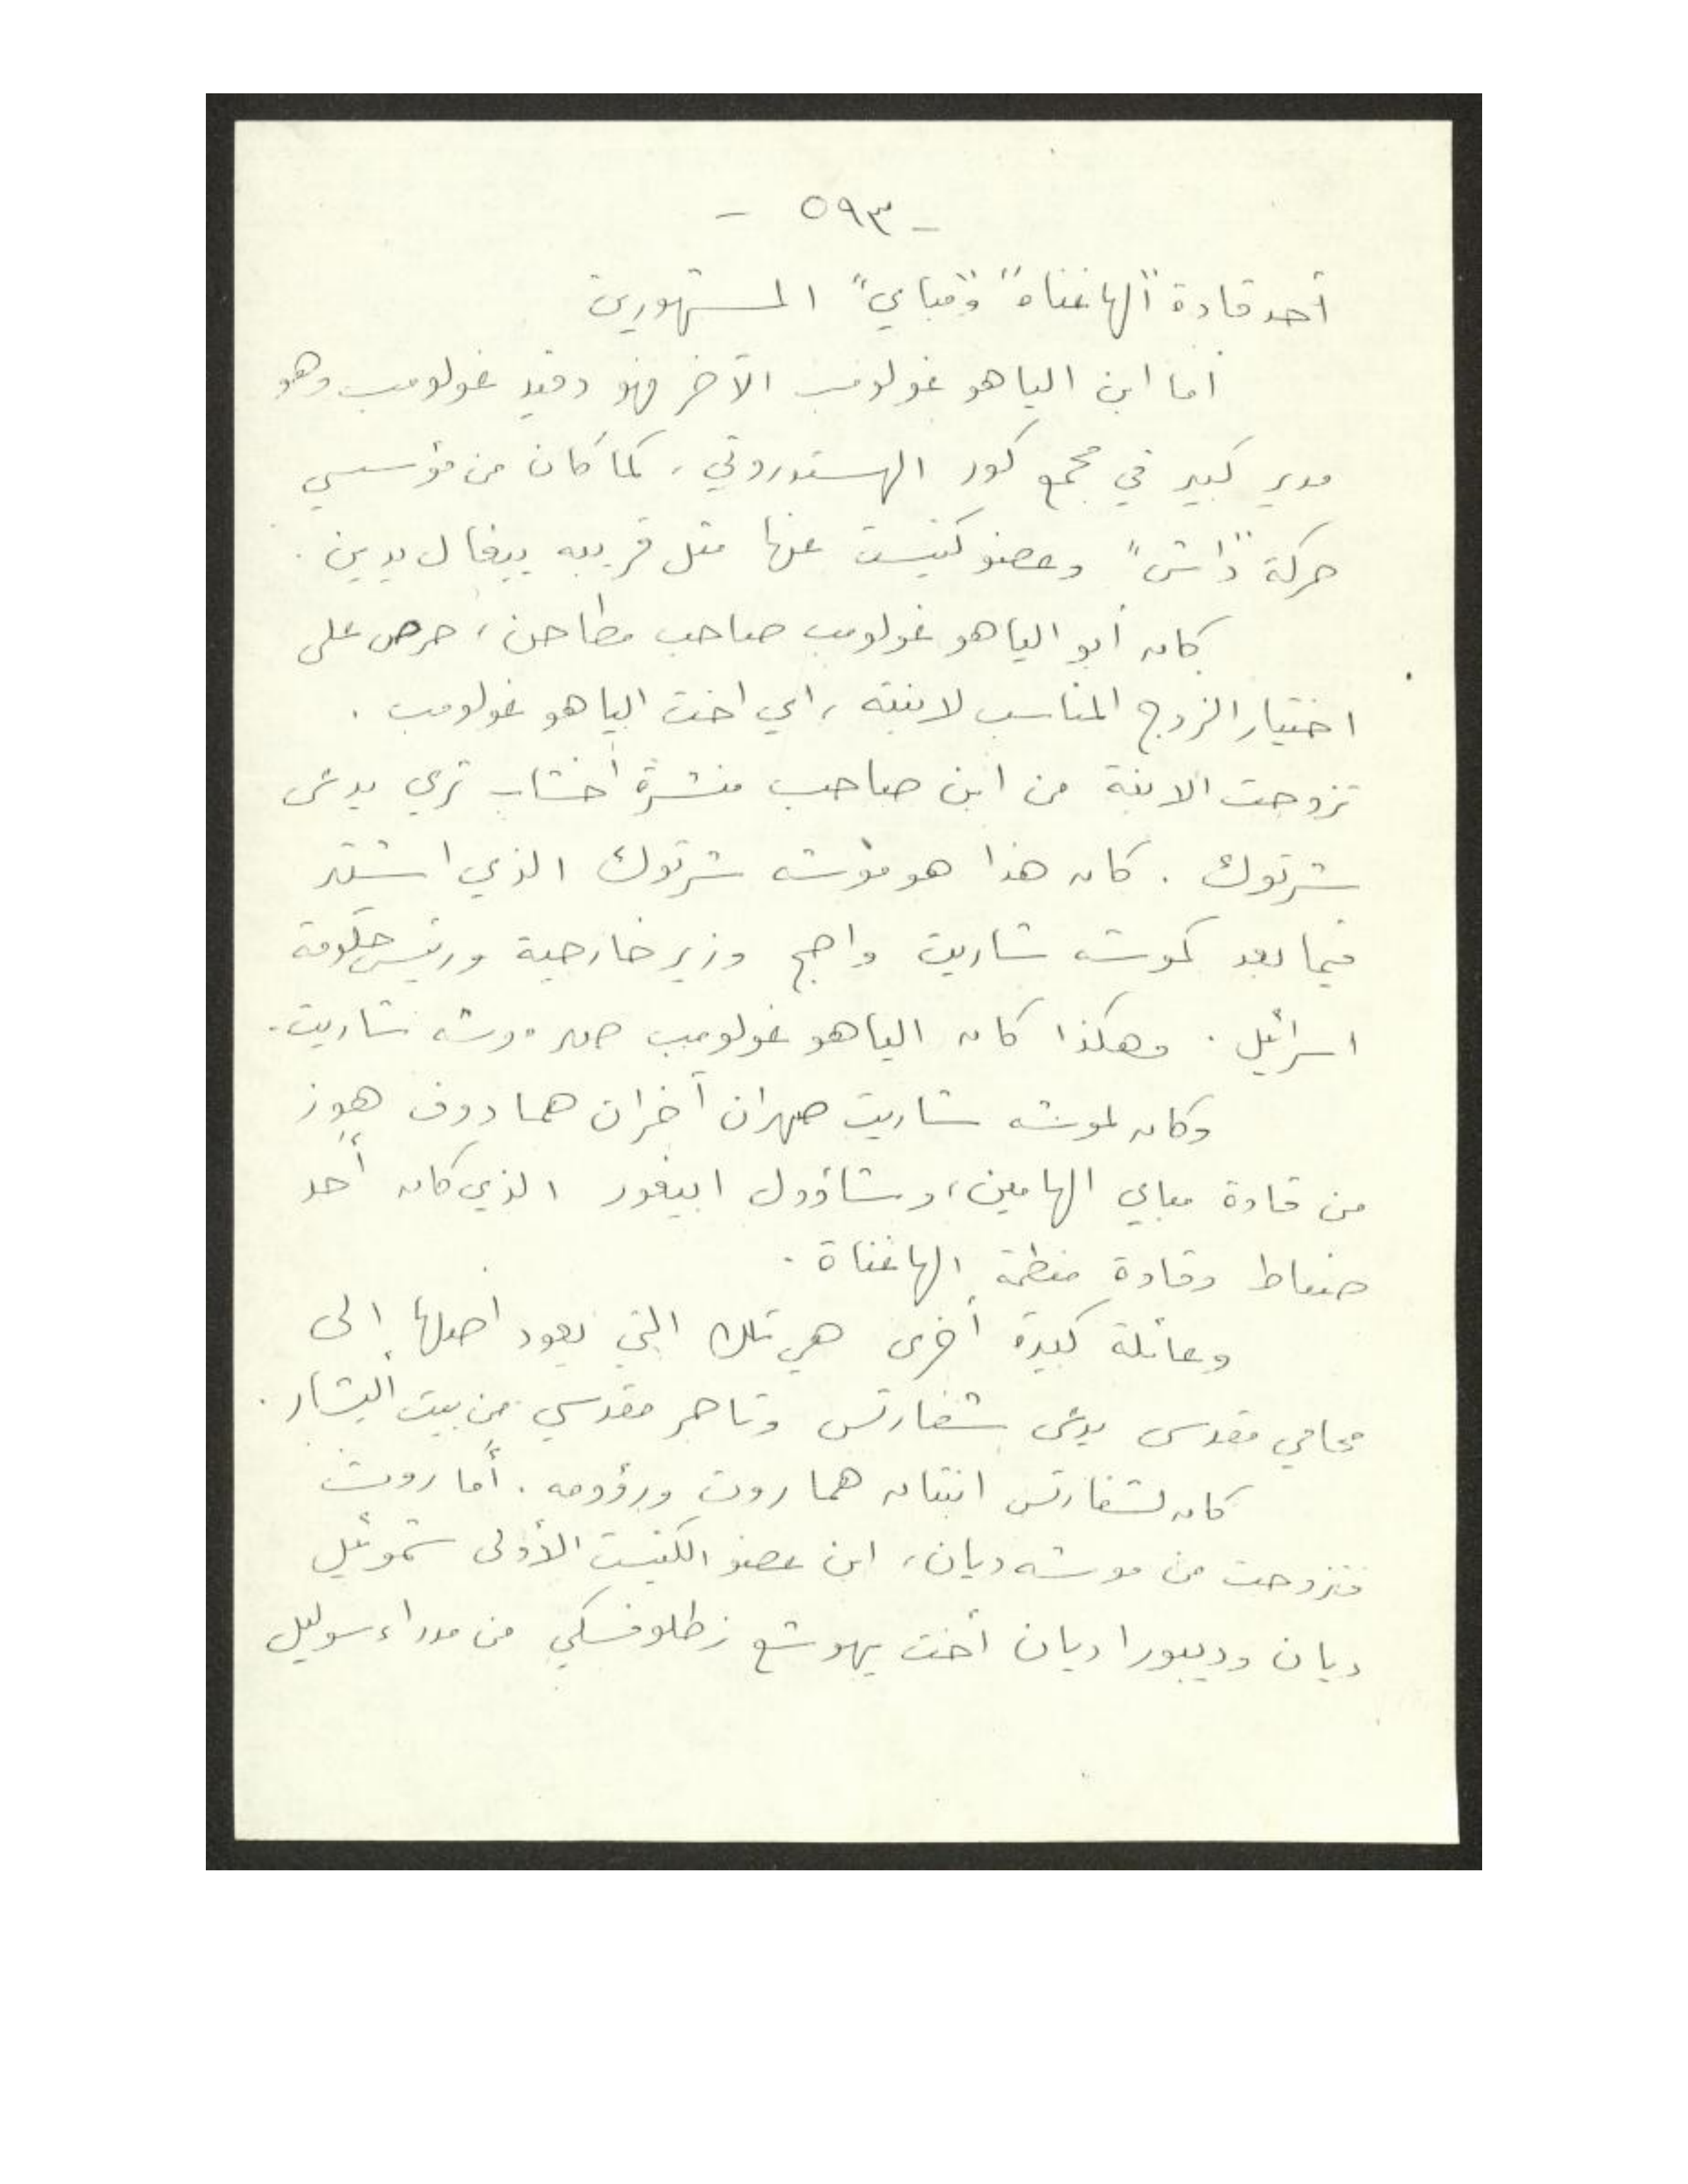 - ٥٩٣ -
أحد قادة "الهاغناه" و"مباي" المشهورين
أما ابن الياهو غولومب الآخر فهو دفيد غولومب وهو
مدير كبير في مجمع كور الهستدروتي، كما كان من مؤسسي
حركة "داش" وعضو كنيست عنها مثل قريبه ييغال يدين.
كان أبو الياهو غولومب صاحب مطاحن، حرص على
اختيار الزوج المناسب لابنته، اي اخت الياهو غولومب.
تزوجت الابنة من ابن صاحب منشرة أخشاب ثري يدعى
شرتوك. كان هذا هو موشه شرتوك الذي اشتهر
فيما بعد كموشه شاريت واصبح وزير خارجية ورئيس حكومة
اسرائيل. وهكذا كان الياهو غولومب صهر موشه شاريت.
وكان لموشه شاريت صهران آخران هما دوف هوز
من قادة مباي الهامين، وشاؤول ابيغور الذي كان أحد
ضباط وقادة منظمة الهاغناة.
وعائلة كبيرة أخرى هي تلك التي يعود اصلها إلى
محامي مقدسي يدعى شفارتس وتاجر مقدسي من بيت اليشار.
كان لشفارتس ابنتان هما روت ورؤومه. أما روت
فتزوجت من موشه ديان، ابن عضو الكنيست الأولى شموئيل
ديان وديبورا ديان أخت يهوشع زطلوفسكي من مدراء سوليل